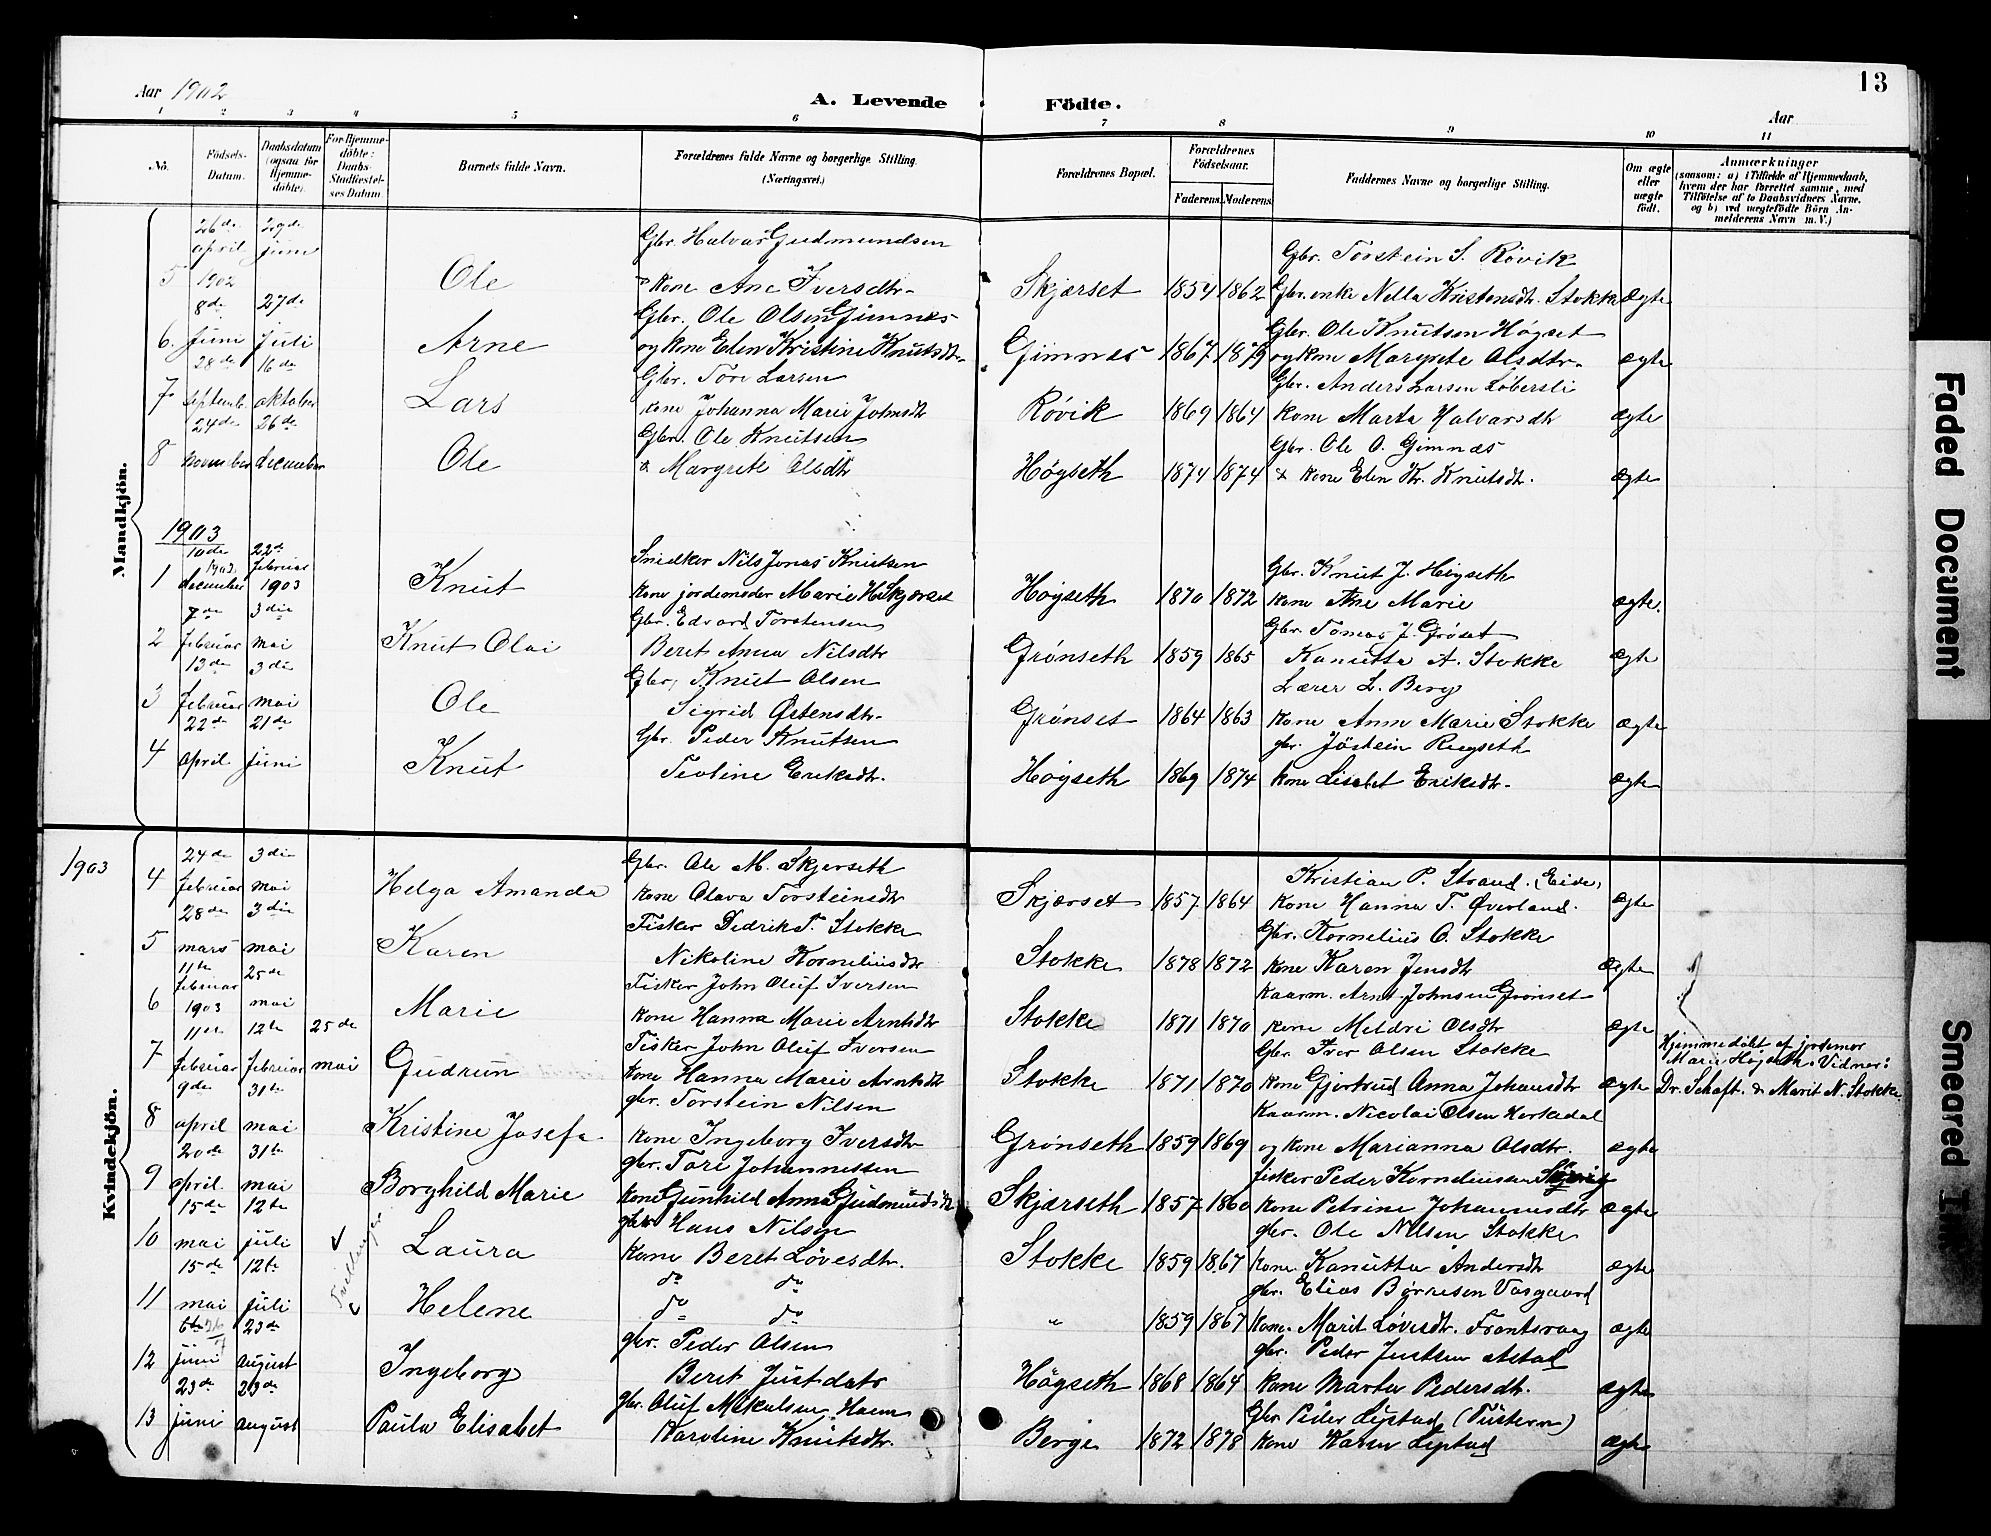 13
Aar 1902
A. Levende Födte.
Aar
1 2 3 4 5 6 7 8 9 10 11
No.
Födsels-Datum.
Daabsdatum (ogsaa for Hjemme-döbte).
For Hjemme-döbte: Daabs-Stadfæstel-ses Datum.
Barnets fulde Navn.
Forældrenes fulde Navne og borgerlige Stilling. (Næringsvei.)
Forældrenes Bopæl.
Forældrenes Födselsaar.
Faderens. Moderens.
Faddernes Navne og borgerlige Stilling.
Om ægte eller uægte født.
Anmærkninger
(saasom: a) i Tilfælde af Hjemmedaab, hvem der har forrettet samme, med Tilföielse af to Daabsvidners Navne, og b) ved uægtefødte Börn An-melderens Navn m. V.)
Mandkjön.
26de 29de Gbr. Halvar Gudmundsen Gbr. Torstein S. Røvik
april juni
5 1902 Ole kone Ane Iversdtr. Skjærset 1854 1862 Gbr. enke Nella Kristensdtr. Stokke ægte
8de 27de Gbr. Ole Olsen Gimnes Gbr. Ole Knutsen Høgset
6. Juni Juli Arne og kone Elen Kristine Knutsdtr. Gimnes 1867 1879 og kone Margrete Olsdtr. ægte
28de 16de Gbr. Tore Larsen Gbr. Anders Larsen Løbersli
7 septemb. oktober Lars kone Johanna Marie Johnsdtr Røvik 1869 1864 kone Marta Halvarsdtr ægte
24de 26de Gbr. Ole Knutsen Gbr. Ole O. Gimnæs
8 november december Ole & Margrete Olsdtr Høgseth 1874 1874 & kone Elen Kr. Knutsdtr. ægte
1903
10de 22de Snedker Nils Jonas Knutsen Gbr. Knut J. Høgseth
1 december februar 1903 Knut kone jordemoder Marie H. Skjærset Høgseth 1870 1872 kone Ane Marie ægte.
7de 3die Gbr. Edvard Torstensen Gbr. Tomas J. Grøset
2 februar mai Knut Olai Beret Anna Nilsdtr Grønseth 1859 1865 Kanutta A. Stokke ægte
13de 3die Gbr. Knut Olsen Lærer L. Berg
3 februar mai Ole Sigrid Østensdtr. Grønset 1864 1863 kone Anne Marie Stokke ægte
22de 21de Gbr. Peder Knutsen gbr. Jöstein
4 april juni Knut Teoline Eriksdtr. Høgseth 1869 1874 kone Lisabet Eriksdtr. ægte
1903
Kvindekjön.
24de 3die Gbr. Ole M. Skjerseth Kristian P. Strand. (Eide)
4 februar mai Helga Amanda kone Olava Torsteinsdtr Skjærset 1857 1864 kone Hanna T. Øverland. ægte
28de 3die Fisker Didrik T. Stokke Gbr. Kornelius O. Stokke
5 mars mai Karen Nikoline Kornelusdtr Stokke 1878 1872 kone Karen Jensdtr ægte
11te 25de Fisker John Oluf Iversen Kaarm. Arnt Johnsen Grønset
6 februar 1903 mai Marie kone Hanna Marie Arntsdtr Stokke 1871 1870 kone Meldri Olsdtr ægte
11te 12te 25de Fisker John Oluf Iversen Gbr. Iver Olsen Stokke Hjemmedøbt af jordemor
7 februar februar mai Gudrun kone Hanna Marie Arntsdtr Stokke 1871 1870 kone Gjertrud Anna Johansdtr ægte Marie Høgseth. Vidner: Dr. Schaft. & Marit N. Stokke
9de 31te gbr. Torstein Nilsen Kaarm. Nicolai Olsen Korsedal
8 april mai Kristine Josefa kone Ingeborg Iversdtr Grønseth 1859 1869 og kone Marianna Olsdtr. ægte
20de 31te gbr. Tore Johannessen fisker Peder Korneliussen
9 april mai Borghild Marie kone Gunhild Anna Gudmundsdtr Skjærseth 1857 1860 kone Petrine Johannesdtr ægte
15de 12te gbr Hans Nilsen gbr. Ole Nilsen Stokke
10 mai juli Laura kone Beret Løvesdtr. Stokke 1859 1867 kone Kanutta Andersdtr ægte
15de 12te do do gbr. Elias Børresen Vasgaard
11 mai juli Helene do do " 1859 1867 kone. Marit Løvesdtr. Frontsvaag ægte
6te 23de gbr. Peder Olsen gbr. Peder Justsen
12 juni august Ingeborg Beret Justdatr Högseth 1868 1864 kone Marta Pedersdtr. ægte
23de 23de gbr. Oluf Mikalsen Gbr Peder Leptad (Tustern)
13 juni august Paula Elisabet Karoline Knutsdtr. Berge 1872 1878 kone Karen Leptad ægte
Faded Document
Smeared Ink